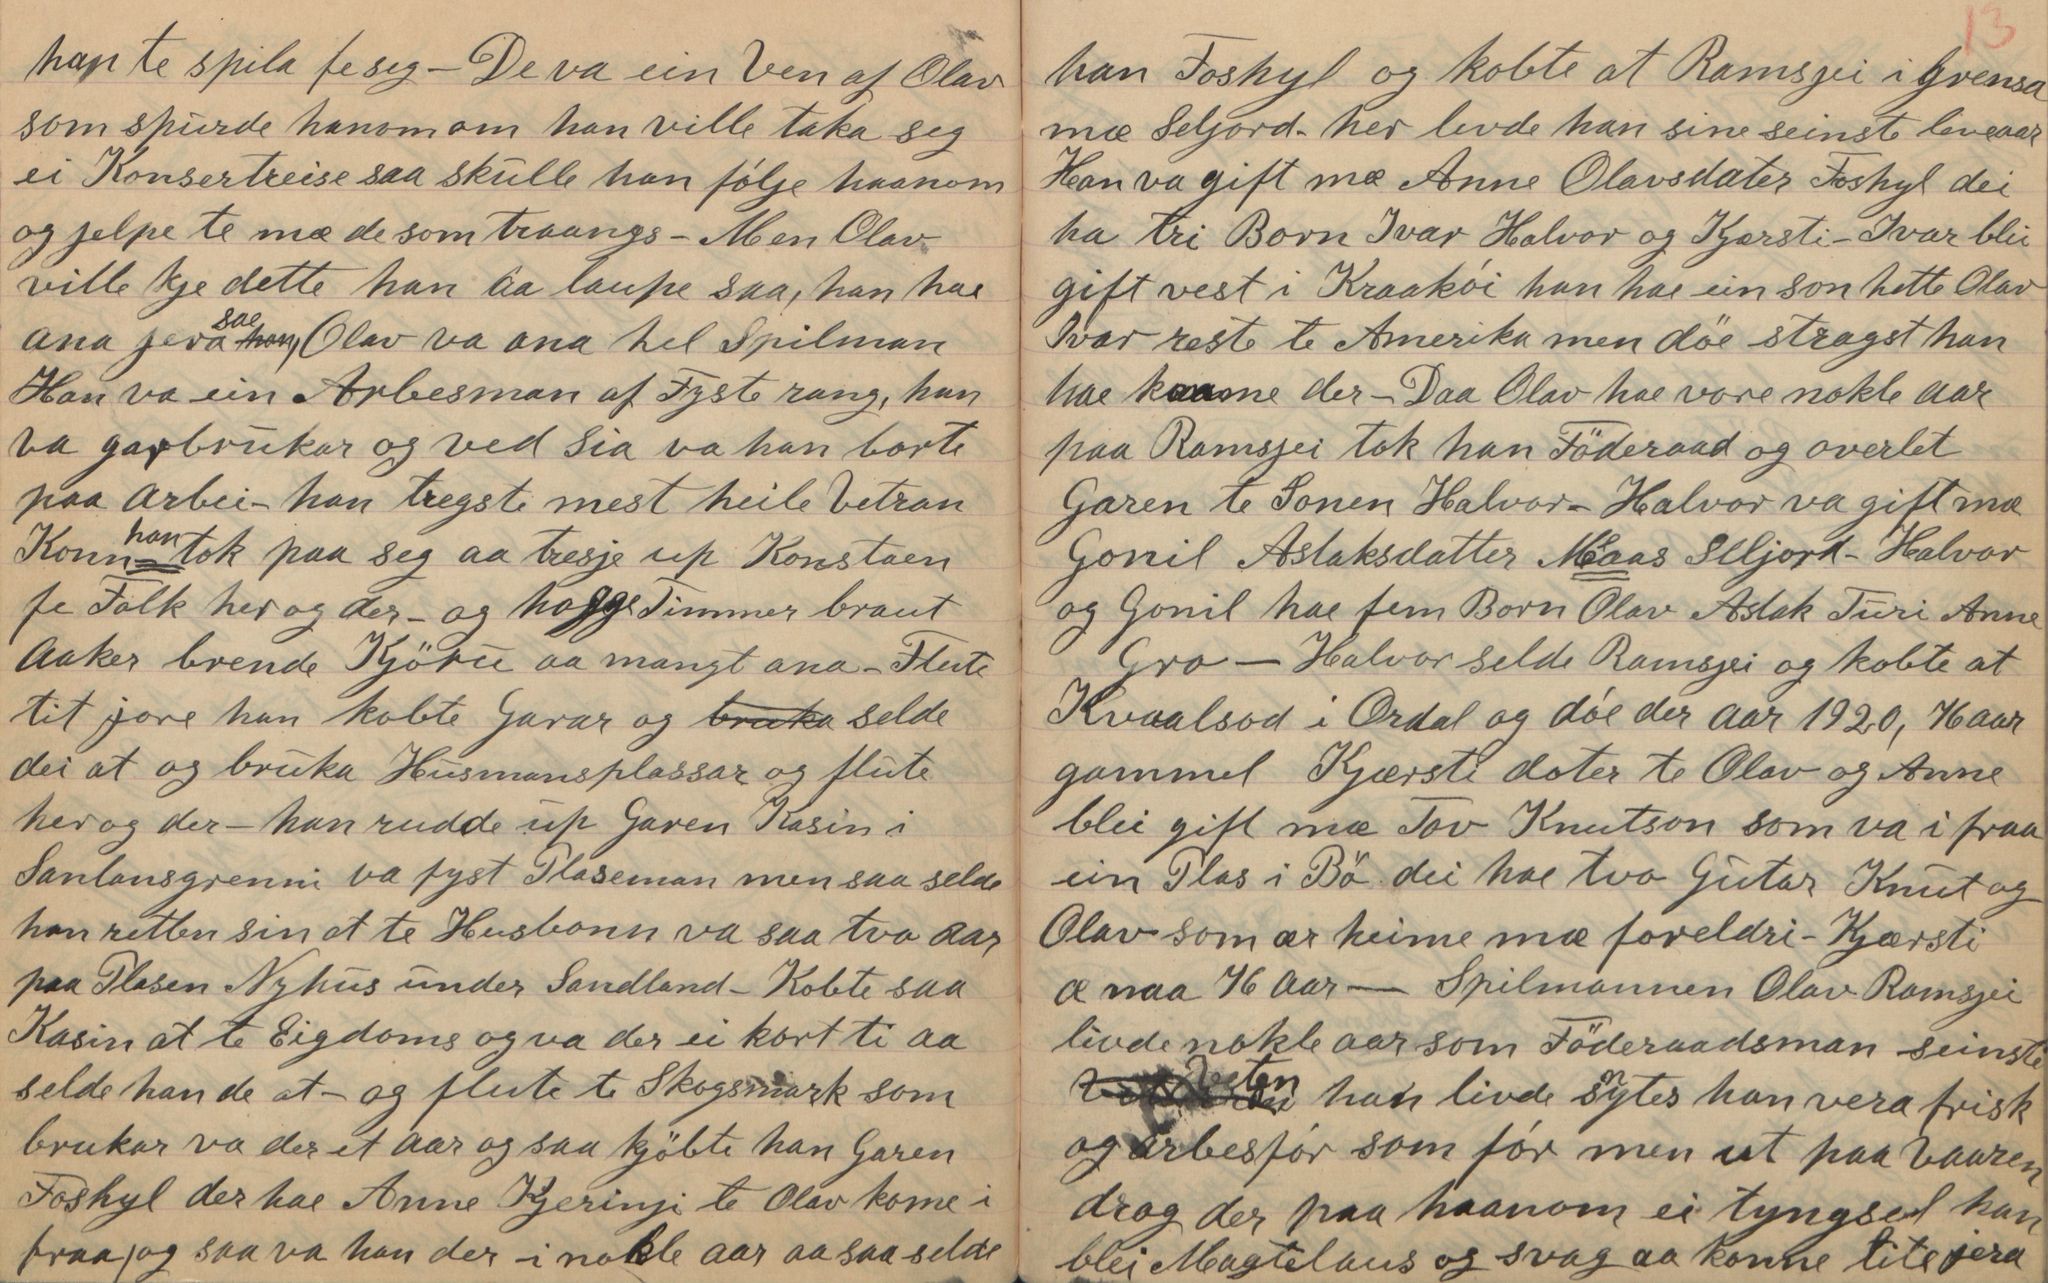 han te spila fe seg – De va ein Ven af Olav
som spurde hanom om han ville taka seg
ei Konsertreise saa skulle han følje haanom
og jelpe te mæ de som traangs – Men Olav
ville kje dette han aa laupe saa, han hae
ana jera sae han, Olav va ana hel Spilman
Han va ein Arbesman af Fyste rang, han
va garbrukar og ved Sia va han borte
paa arbei – han tregste mest heile Vetran
Konn – han tok paa seg aa tresje up Konstaen
fe Folk her og der – og hogge Timmer braut
aaker brende Kjöru aa mangt ana – Flute
tit jore han kobte Garar og bruka selde
dei at og bruka Husmansplassar og flute
her og der – han rudde up Garen Kasin i
Sanlansgrenni va fyst Plaseman men saa selde
han retten sin at te Husbonn va saa tvo aar
paa Plasen Nyhus under Sandland – Kobte saa
Kasin at te Eigdoms og va der ei kort ti aa
selde han de at – og flute te Skogsmark som
brukar va der et aar og saa kjöbte han Garen
Foshyl der hae Anne Kjerinji te Olav kome i
fraa, og saa va han der i nokle aar aa saa selde
13
han Foshyl og kobte at Ramsjei i Grensa
mæ Seljord – her levde han sine seinste leveaar
Han va gift mæ Anne Olavsdater Foshyl dei
ha tri Born Ivar Halvor og Kjærsti – Ivar blei
gift vest i Kraakói han hae ein son hette Olav
Ivar reste te Amerika men döe stragst han
hae kaame der – Daa Olav hae vore nokle aar
paa Ramsjei tok han Föderaad og overlet
Garen te Sonen Halvor – Halvor va gift mæ
Gonil Aslaksdatter Maas Slljord – Halvor
og Gonil hae fem Born Olav Aslak Turi Anne
Gro – Halvor selde Ramsjei og kobte at
Kvaalsod i Ordal og dóe der aar 1920, 76 aar
gammel Kjærsti doter te Olav og Anne
blei gift mæ Tov Knutson som va i fraa
ein Plas i Bö dei hae tvo Gutar Knut og
Olav som ær heime mæ foreldri – Kjærsti
æ naa 76 aar – Spilmannen Olav Ramsjei
livde nokle aar som Föderaadsman seinste
Veten han livde syntes han vera frisk
og arbesfór som fór men ut paa Vaaren
drog der paa haanom ei tyngsel han
blei Magtelaus og svag aa konne lite jera